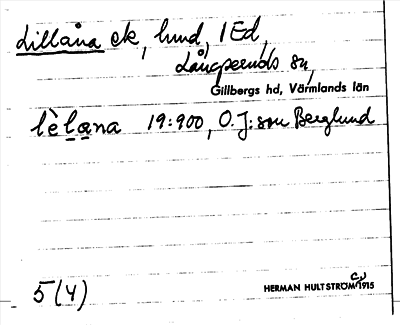 Lillåna ek, hmd, 1 Ed,
Långseruds sn,
Gillbergs hd, Värmlands län
lèlana 19:900, O. J:son Berglund
5(4)
HERMAN HULTSTRÖM 1915